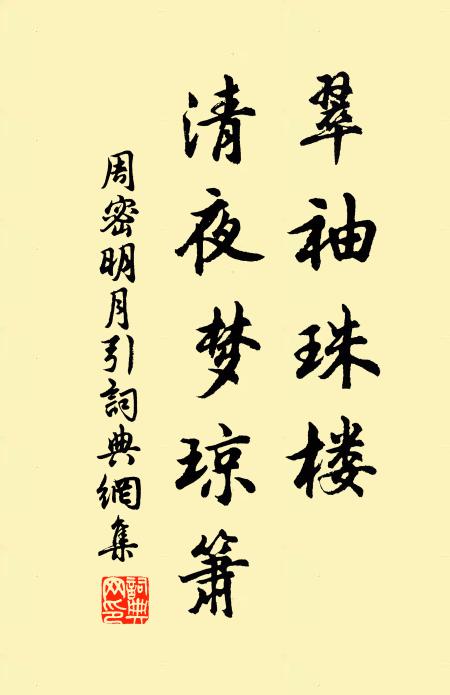 翠袖珠楼
清夜梦琼箫
周密明月引詞典網集
詞典網印